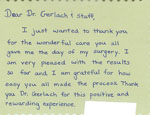 Dear Dr. Gerlach & staff,
I just wanted to thank you
for the wonderful care you all
gave me the day of my surgery. I
am very pleased with the results
so far and I am grateful for how
easy you all made the process. Thank
you Dr. Gerlach for this positive and
rewarding experience.